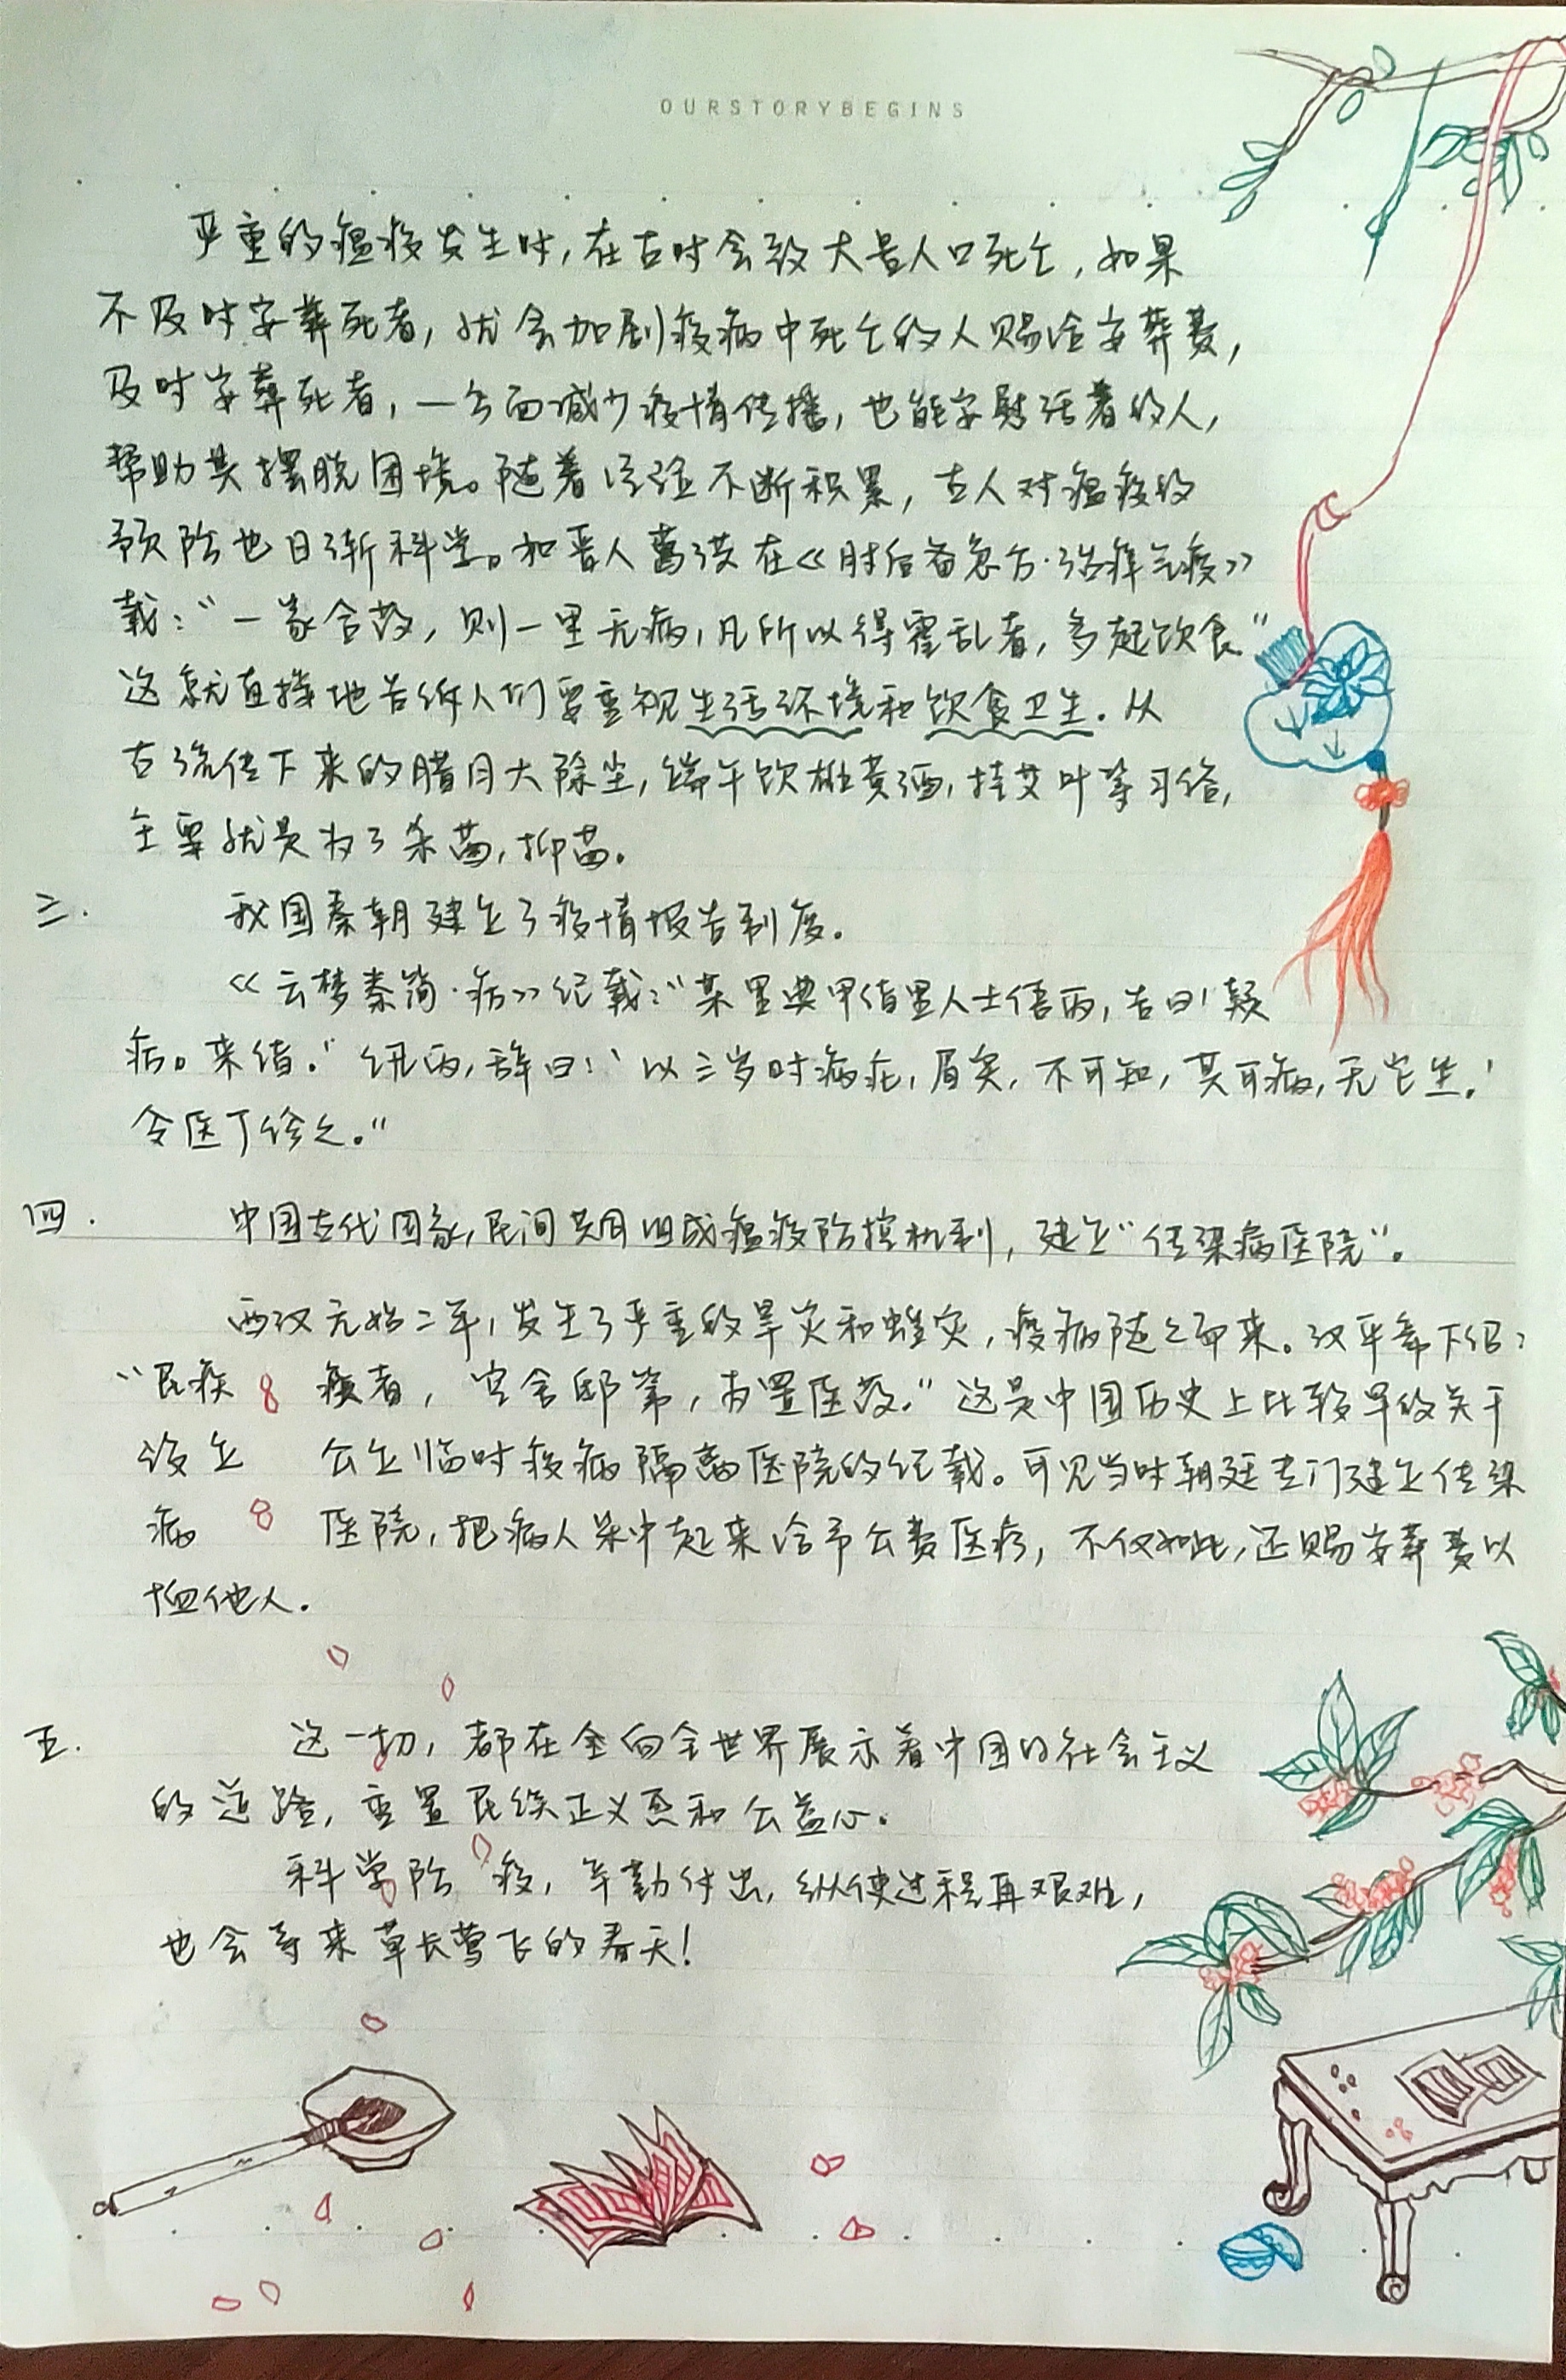 OURSTORYBEGINS
严重的瘟疫发生时,在古时会致大量人口死亡,如果
不及时安葬死者,就会加剧疫病中死亡的人赐给安葬费,
及时安葬死者,一方面减少疫情传播,也能安慰活着的人,
帮助其摆脱困境。随着经验不断积累,古人对瘟疫的
预防也日渐科学。如晋人葛洪在《肘后备急方·治瘴气疫》
载:“一家合药,则一里无病,凡所以得霍乱者,多起饮食”
这就直接地告诉人们要重视生活环境和饮食卫生.从
古流传下来的腊月大除尘,端午饮雄黄酒,挂艾叶等习俗,
主要就是为了杀菌,抑菌.
三. 我国秦朝建立了疫情报告制度.
《云梦秦简·疠》纪载:“某里典甲值里人士伍丙,告曰'疑
疠。来值.”讯丙,辞曰:'以三岁时病疕,眉突,不可知,其可病,无它坐.'
令医丁诊之.”
四. 中国古代国家,民间共同组成瘟疫防控机制,建立“传染病医院”.
西汉元始二年,发生了严重的旱灾和蝗灾,疫病随之而来.汉平帝下诏:
“民疾 疫者,空舍邸第,为置医药.”这是中国历史上比较早的关于
设立 公立临时疫病隔离医院的纪载。可见当时朝廷专门建立传染
病 医院,把病人集中起来给予公费医疗,不仅如此,还赐安葬费以
恤他人.
五. 这一切,都在全向全世界展示着中国的社会主义
的道路,重置民族正义感和公益心.
科学防 疫,辛勤付出,纵使过程再艰难,
也会等来草长莺飞的春天!